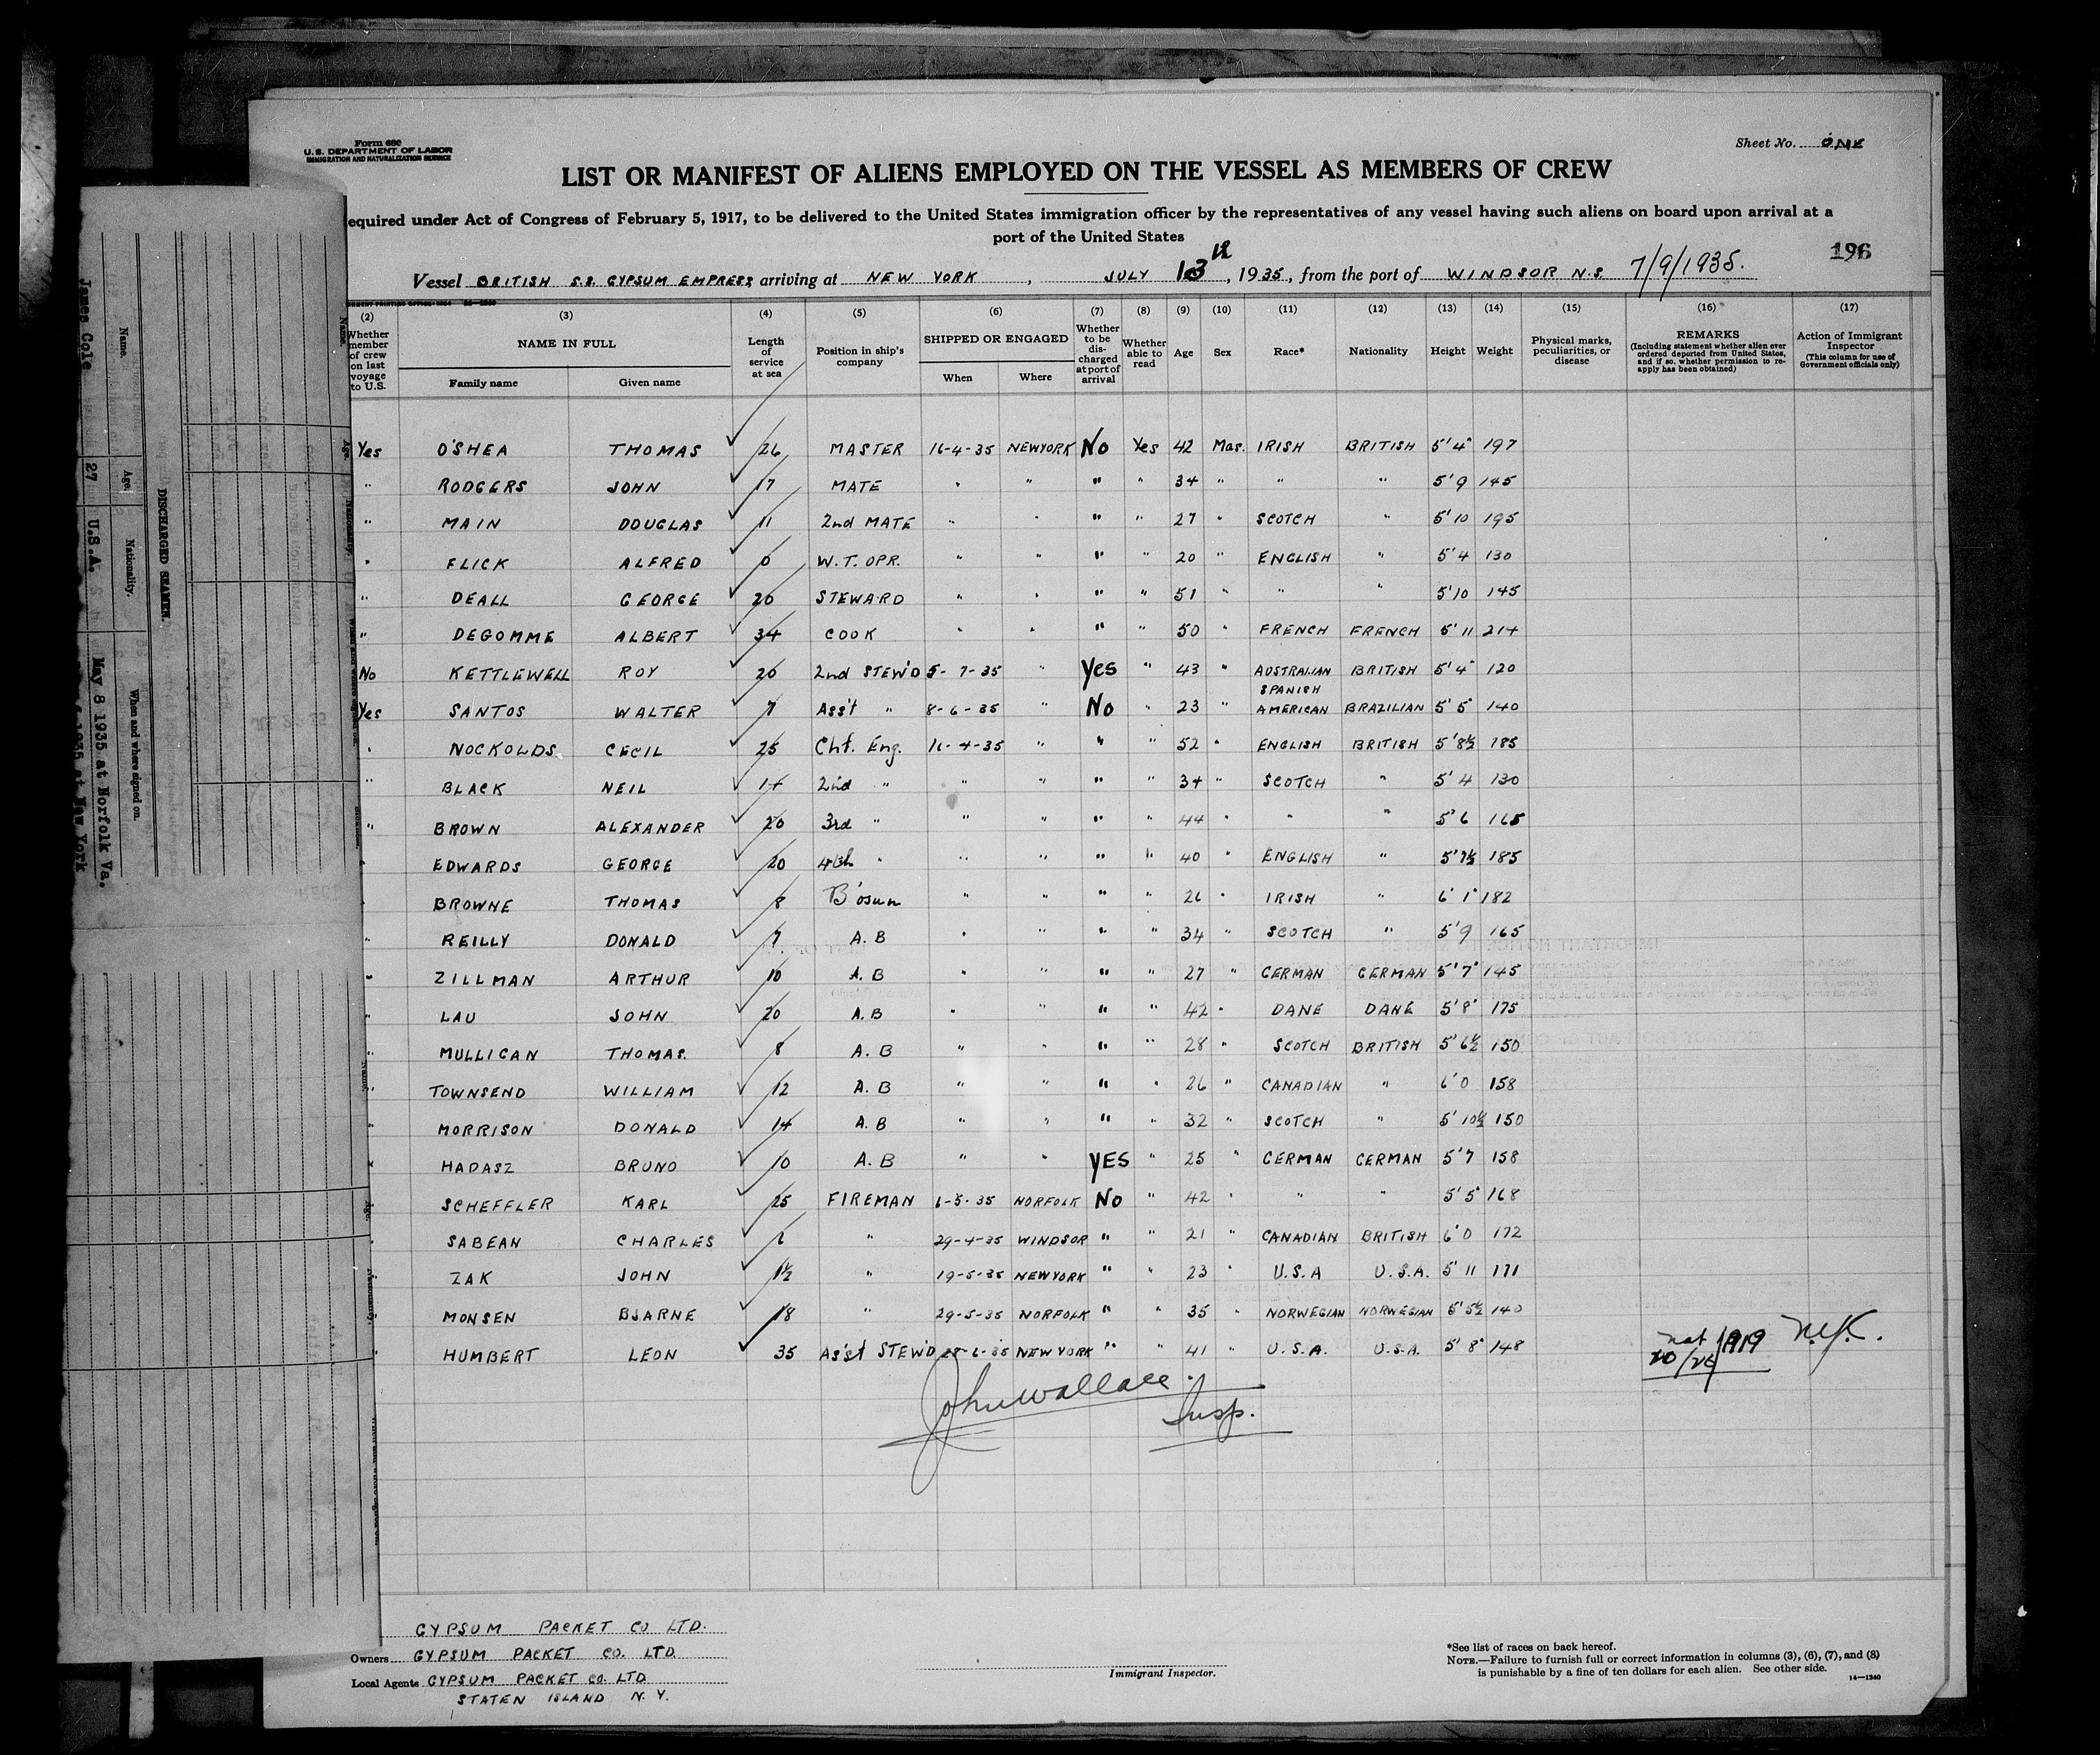 Form 680
U.S. DEPARTMENT OF LABOR
IMMIGRATION AND NATURALIZATION SERVICE
Sheet No. ONE
LIST OR MANIFEST OF ALIENS EMPLOYED ON THE VESSEL AS MEMBERS OF CREW
equired under Act of Congress of February 5, 1917, to be delivered to the United States immigration officer by the representatives of any vessel having such aliens on board upon arrival at a
port of the United States
196
Vessel BRITISH S.S. GYPSUM EMPRESS arriving at NEW YORK, JULY 13th, 1935, from the port of WINDSOR N.S. 7/9/1935.
(2) (3) (4) (5) (6) (7) (8) (9) (10) (11) (12) (13) (14) (15) (16) (17)
Whether member of crew on last voyage to U.S. NAME IN FULL Family name Given name Length of service at sea Position in ship's company SHIPPED OR ENGAGED When Where Whether to be discharged at port of arrival Whether able to read Age Sex Race* Nationality Height Weight Physical marks, peculiarities, or disease REMARKS (Including statement whether alien ever ordered deported from United States, and if so, whether permission to reapply has been obtained) Action of Immigrant Inspector (This column for use of Government officials only)
Yes O'SHEA THOMAS 26 MASTER 16-4-35 NEWYORK No Yes 42 Mas. IRISH BRITISH 5'4" 197
" RODGERS JOHN 17 MATE " " " " 34 " " " 5'9 145
" MAIN DOUGLAS 11 2nd MATE " " " " 27 " SCOTCH " 5'10 195
" FLICK ALFRED 0 W.T. OPR. " " " " 20 " ENGLISH " 5'4 130
" DEALL GEORGE 20 STEWARD " " " " 51 " " " 5'10 145
" DEGOMME ALBERT 34 COOK " " " " 50 " FRENCH FRENCH 5'11 214
No KETTLEWELL ROY 20 2nd STEW'D 5-7-35 " Yes " 43 " AUSTRALIAN BRITISH 5'4" 120
Yes SANTOS WALTER 7 Ass't " 8-6-35 " No " 23 " SPANISH AMERICAN BRAZILIAN 5'5" 140
" NOCKOLDS CECIL 25 Chf. Eng. 16-4-35 " " " 52 " ENGLISH BRITISH 5'8½ 185
" BLACK NEIL 14 2nd " " " " " 34 " SCOTCH " 5'4 130
" BROWN ALEXANDER 20 3rd " " " " " 44 " " " 5'6 165
" EDWARDS GEORGE 20 4th " " " " " 40 " ENGLISH " 5'7½ 185
" BROWNE THOMAS 8 B'osun " " " " 26 " IRISH " 6'1" 182
" REILLY DONALD 7 A.B " " " " 34 " SCOTCH " 5'9 165
" ZILLMAN ARTHUR 10 A.B " " " " 27 " GERMAN GERMAN 5'7" 145
" LAU JOHN 20 A.B " " " " 42 " DANE DANE 5'8" 175
" MULLIGAN THOMAS. 8 A.B " " " " 28 " SCOTCH BRITISH 5'6½ 150
" TOWNSEND WILLIAM 12 A.B " " " " 26 " CANADIAN " 6'0 158
" MORRISON DONALD 14 A.B " " " " 32 " SCOTCH " 5'10½ 150
" HADASZ BRUNO 10 A.B " " YES " 25 " GERMAN GERMAN 5'7 158
" SCHEFFLER KARL 25 FIREMAN 6-5-35 NORFOLK No " 42 " " " 5'5" 168
" SABEAN CHARLES 6 " 29-4-35 WINDSOR " " 21 " CANADIAN BRITISH 6'0 172
" ZAK JOHN 1½ " 19-5-35 NEWYORK " " 23 " U.S.A U.S.A. 5'11 171
" MONSEN BJARNE 18 " 29-5-35 NORFOLK " " 35 " NORWEGIAN NORWEGIAN 5'5½ 140
" HUMBERT LEON 35 Ass't STEW'D 28-6-35 NEW YORK " " 41 " U.S.A. U.S.A. 5'8" 148 nat 10/26/1919 N.Y.
John Wallace
Insp.
GYPSUM PACKET CO. LTD.
Owners GYPSUM PACKET CO. LTD
Local Agents GYPSUM PACKET CO. LTD
STATEN ISLAND N.Y.
Immigrant Inspector.
*See list of races on back hereof.
NOTE.—Failure to furnish full or correct information in columns (3), (6), (7), and (8)
is punishable by a fine of ten dollars for each alien. See other side.
14—1240
DISCHARGED SEAMEN.
Name. Age. Nationality. When and where signed on.
James Cole 27 U.S.A. May 8 1935 at Norfolk Va.
1935 at New York